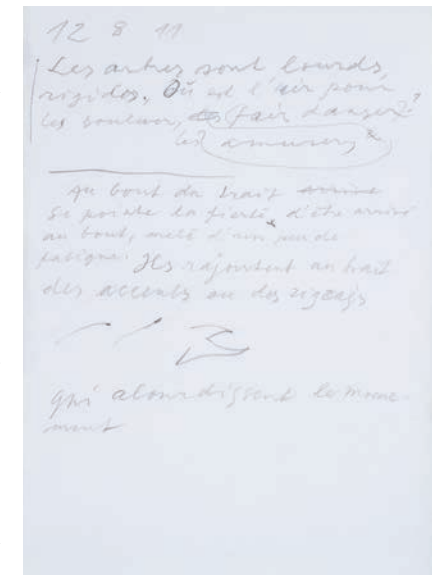 12 8 11
Les arbres sont lourds,
rigides. Où est l'air pour
les soulever, les faire danser?
les amuser?
Au bout du trait arrive
se pointe la fierté d'être arrivé
au bout, mêlé d'un peu de
fatigue. Ils rajoutent au trait
des accents ou des zigzags
qui alourdissent le mouve-
ment